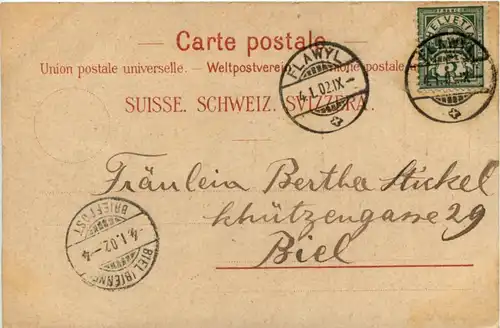 Carte postale.
Union postale universelle. – Weltpostverein postale
SUISSE. SCHWEIZ. SVIZZERA.
FRANCO
HELVETIA
5
FLAWYL
4.I.02.IX–
FLAWYL
Fräulein Bertha Stickel
Schützengasse 29
Biel
BIEL (BIENNE)
4.I.02.–4
BRIEFPOST